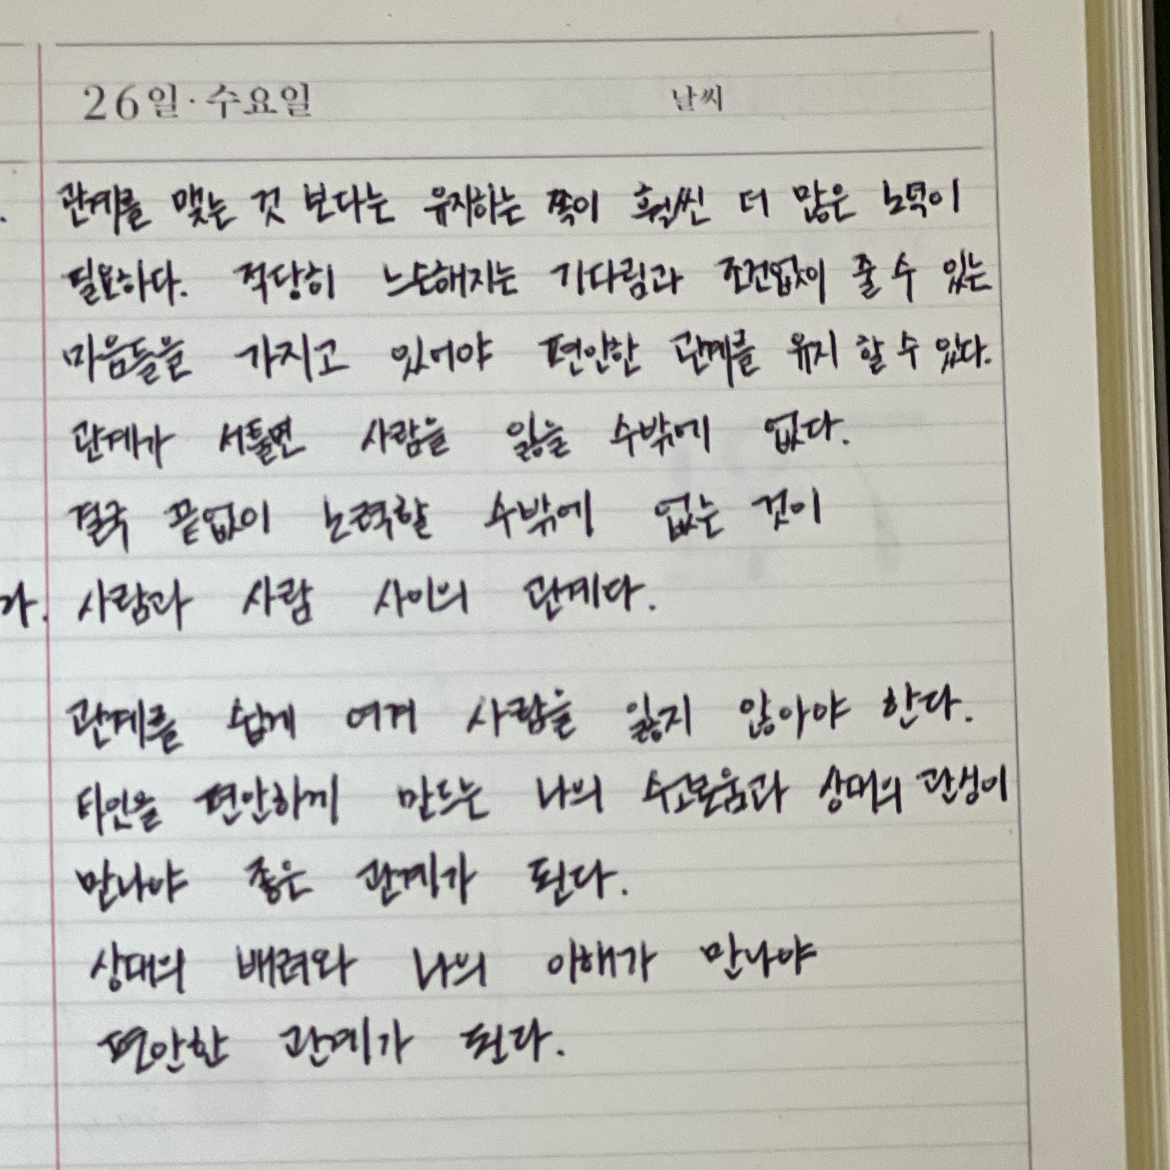 26일·수요일 날씨
관계를 맺는 것 보다는 유지하는 쪽이 훨씬 더 많은 노력이
필요하다. 적당히 느슨해지는 기다림과 조건없이 줄 수 있는
마음들을 가지고 있어야 편안한 관계를 유지 할 수 있다.
관계가 서툴면 사람을 잃을 수밖에 없다.
결국 끝없이 노력할 수밖에 없는 것이
사람과 사람 사이의 관계다.
관계를 쉽게 여겨 사람을 잃지 않아야 한다.
타인을 편안하게 만드는 나의 수고로움과 상대의 희생이
만나야 좋은 관계가 된다.
상대의 배려와 나의 이해가 만나야
편안한 관계가 된다.